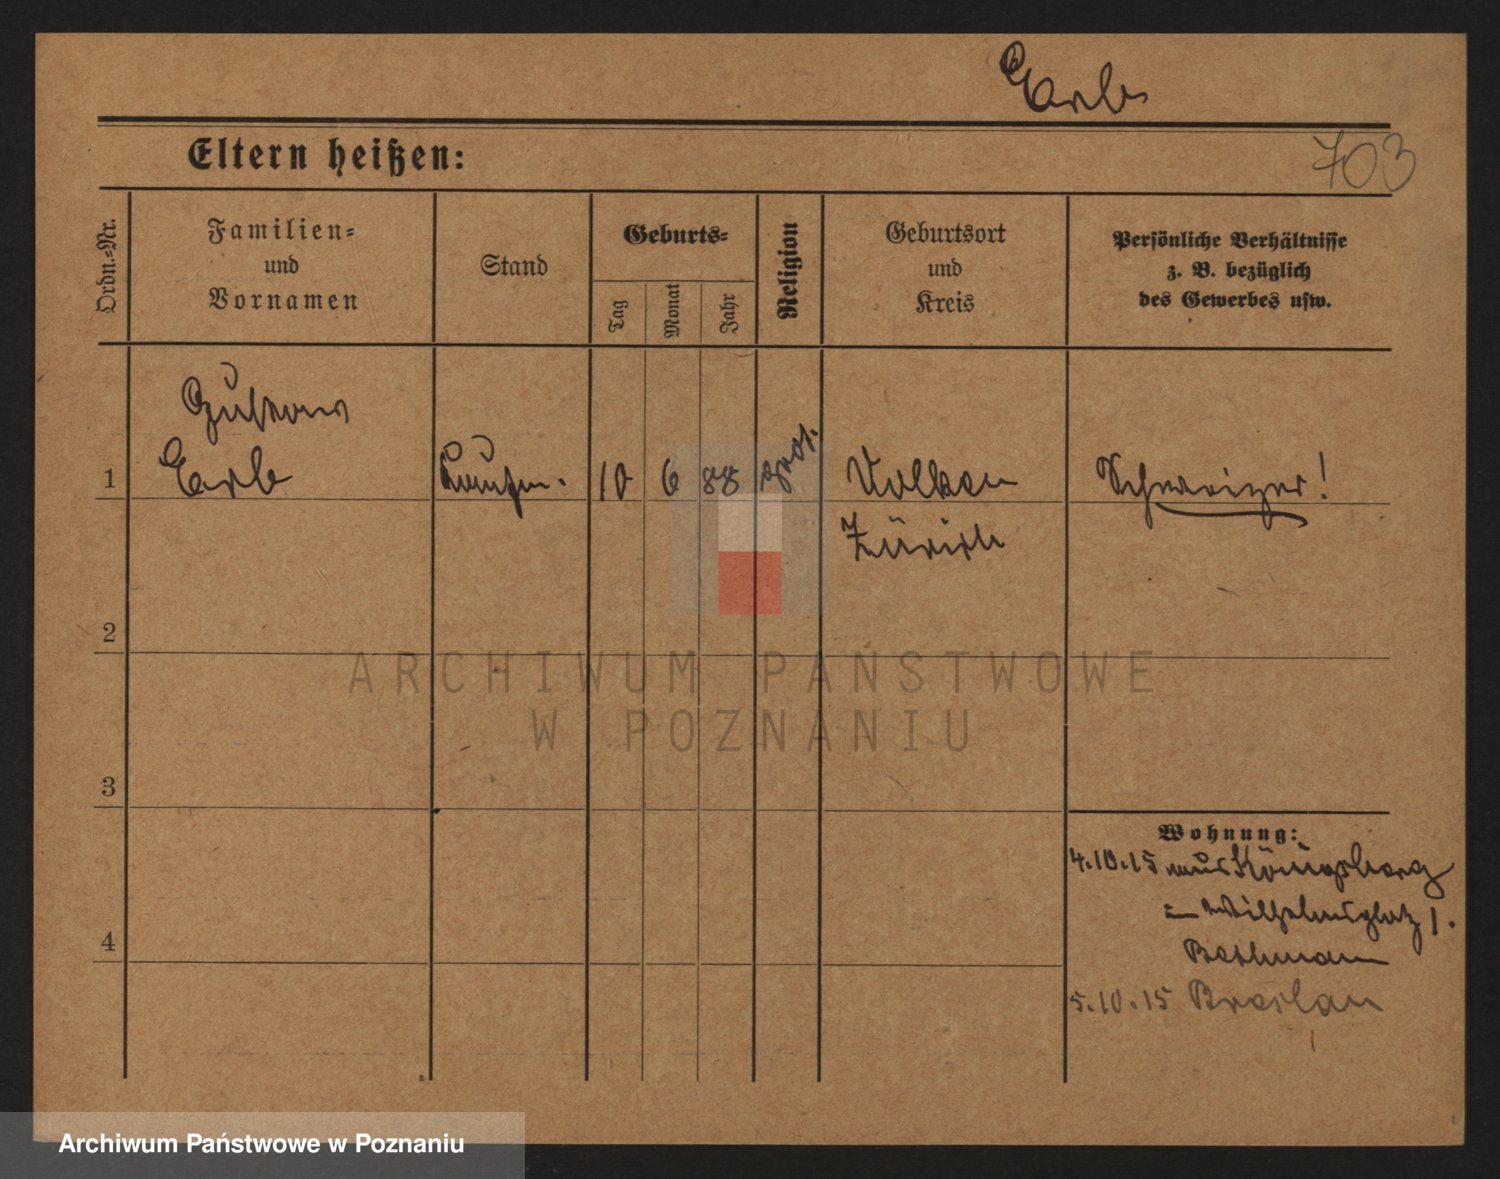 Erb
703
Eltern heißen:
Ordn.-Nr.
Familien-
und
Vornamen
Stand
Geburts-
Tag
Monat
Jahr
Religion
Geburtsort
und
Kreis
Persönliche Verhältnisse
z. B. bezüglich
des Gewerbes usw.
Gustav
1 Erb Kaufm. 10 6 88 prot. Volken Schweizer!
Zürich
2
ARCHIWUM PAŃSTWOWE
W POZNANIU
3
Wohnung:
4.10.15 aus Königsberg
Wilhelmsplatz 1.
4
5.10.15 Breslau
Archiwum Państwowe w Poznaniu